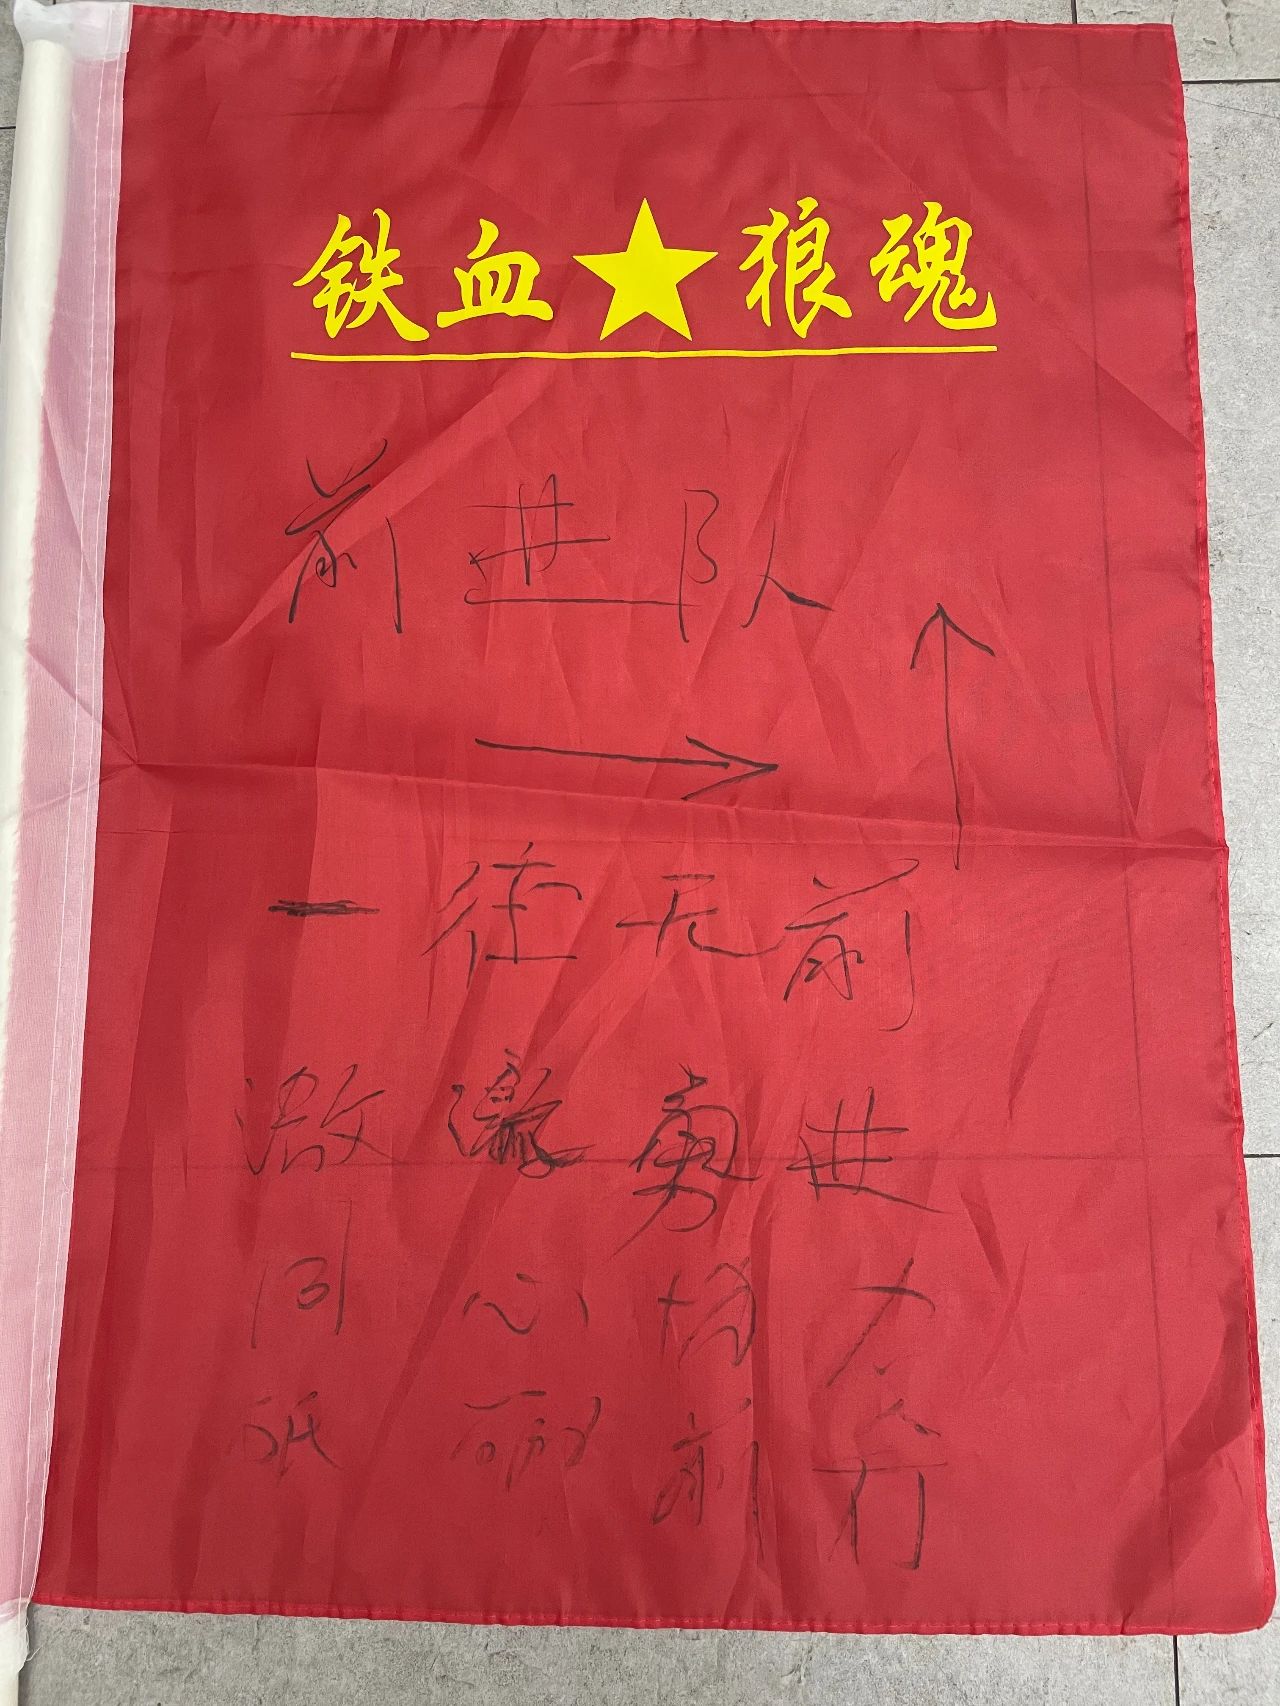 铁血★狼魂
前进队
一往无前
激 勇进
同心协力
砥砺前行